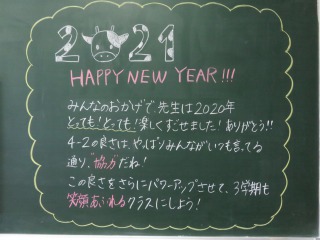 2021
HAPPY NEW YEAR!!!
みんなのおかげで、先生は2020年
とっても!とっても!楽しくすごせました!ありがとう!!
4-2の良さは、やっぱりみんながいつも言ってる
通り、"協力"だね!
この良さをさらにパワーアップさせて、3学期も
笑顔あふれるクラスにしよう!